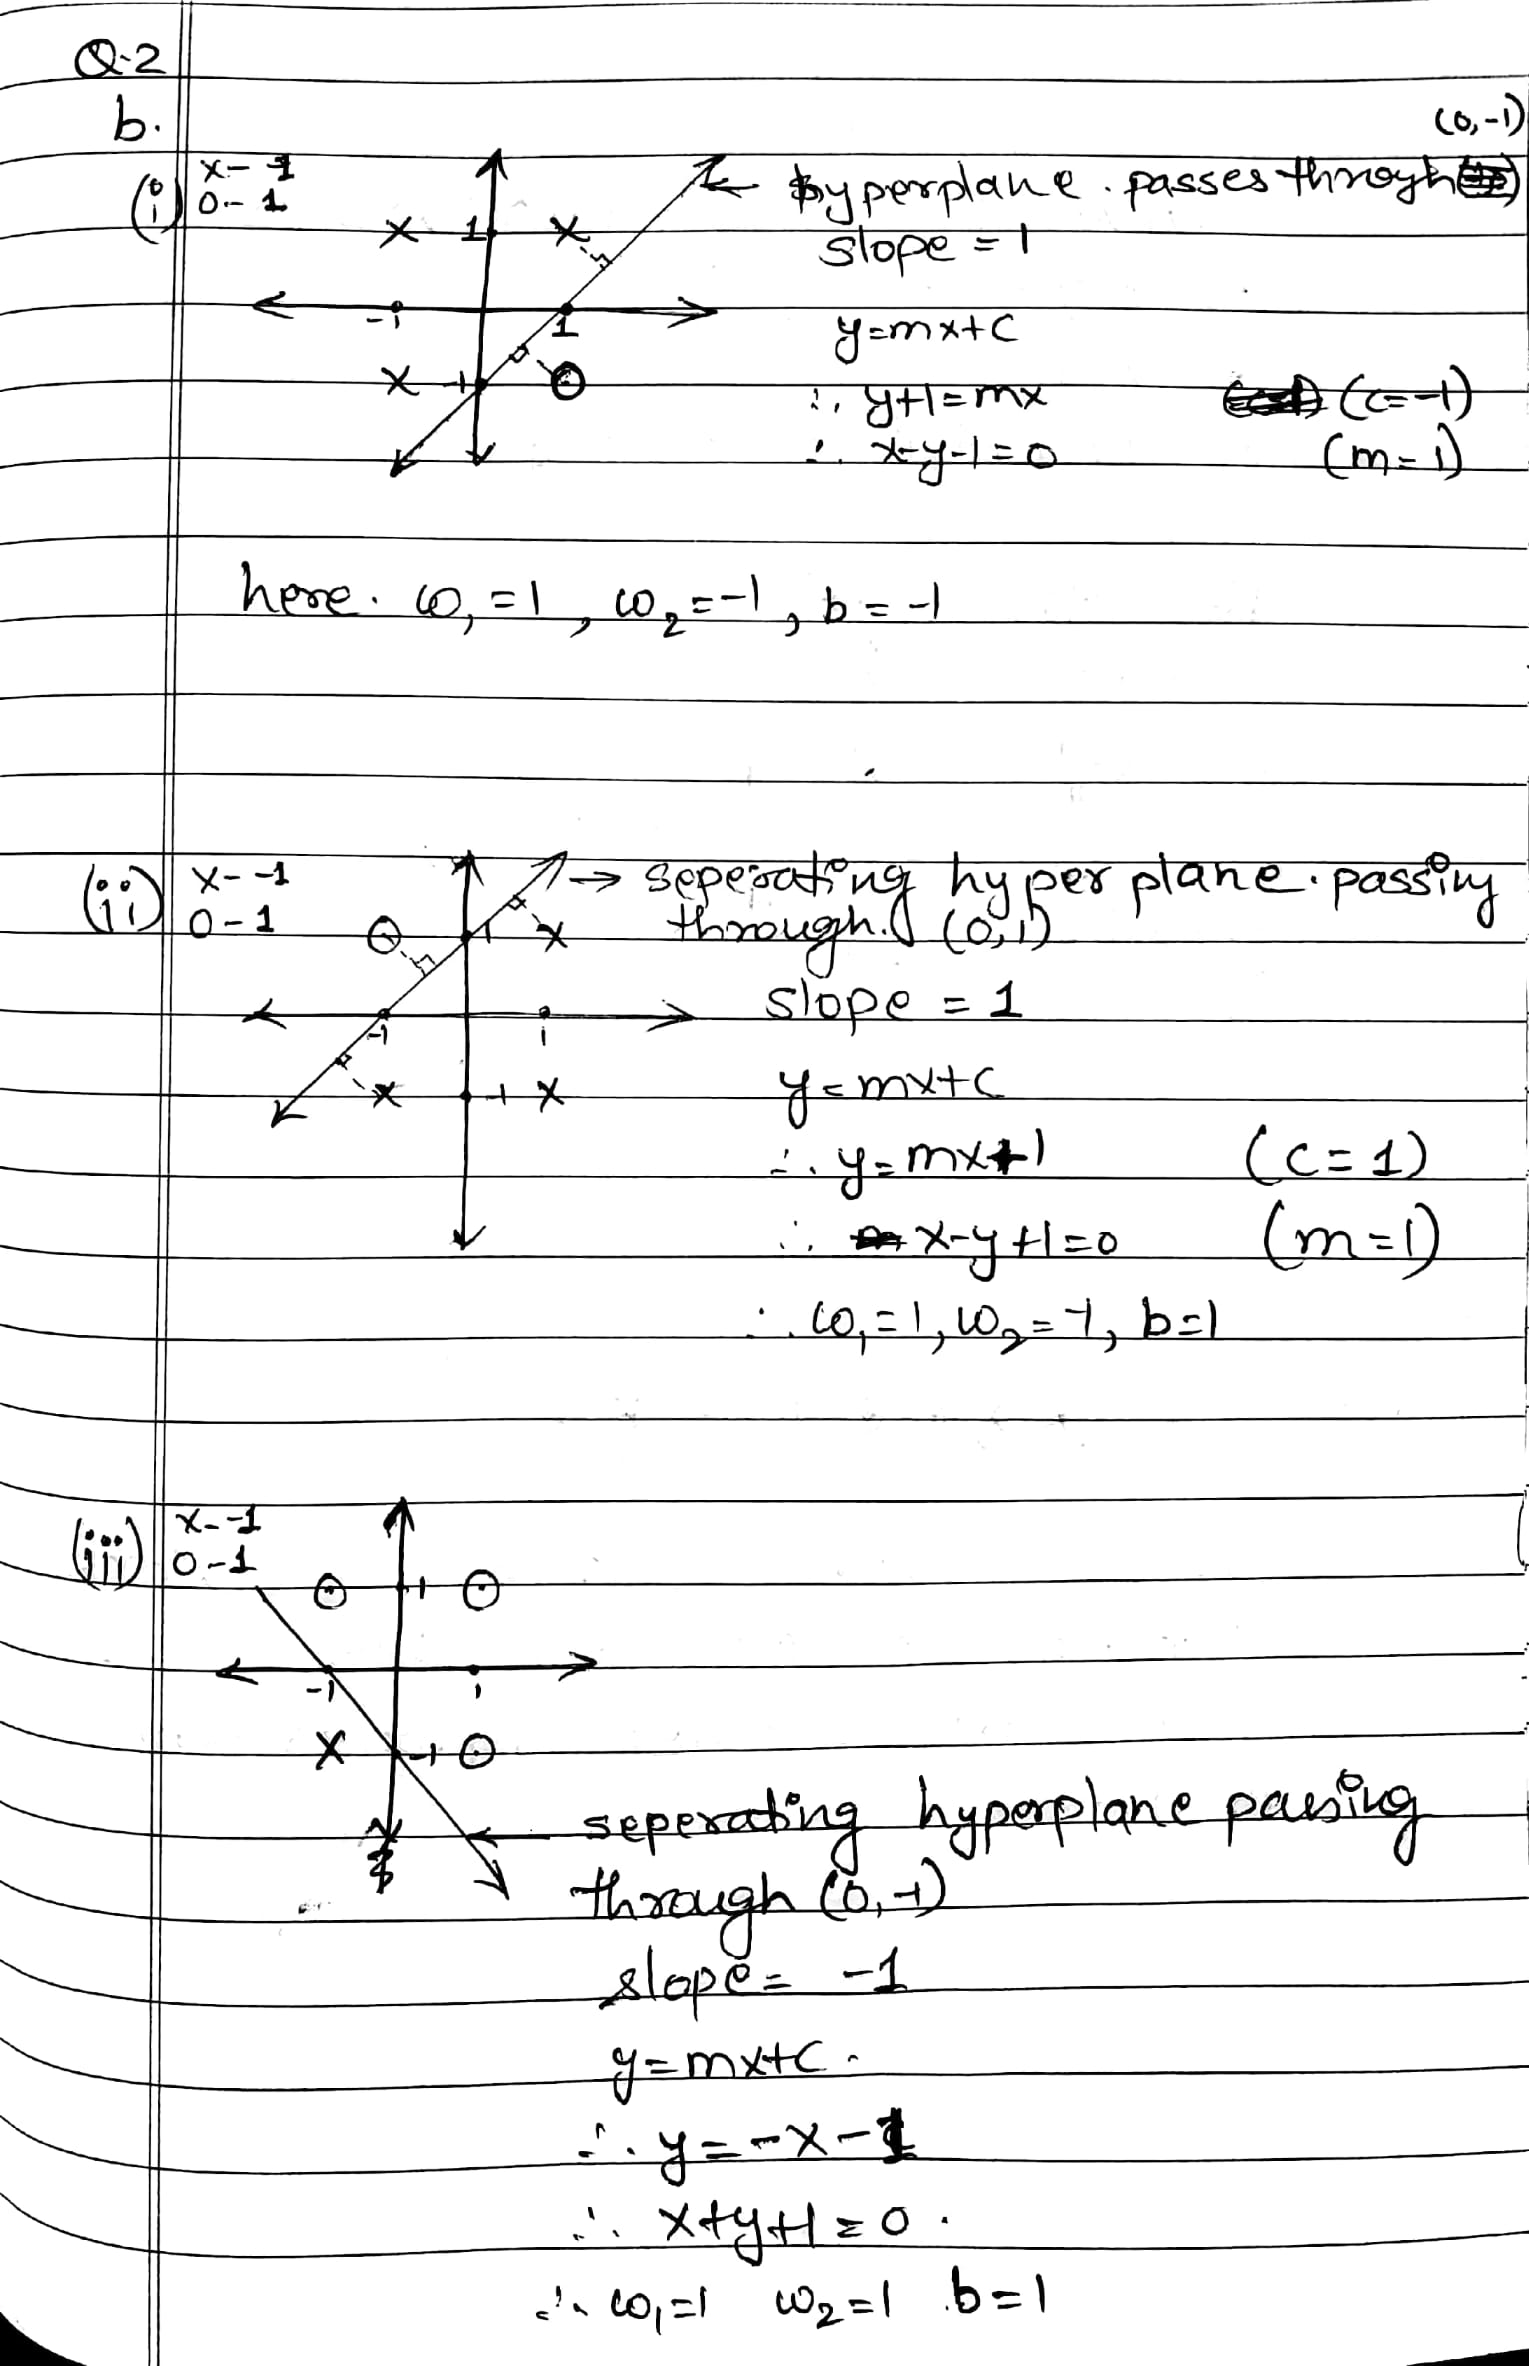 Q-2
b.
(0,-1)
(i) x- -1
0- 1
hyperplane. passes through
slope = 1
x 1 x
-1 1
x -1 O
y=mx+c
∴ y+1=mx (c=-1)
∴ x-y-1=0 (m=1)
here. ω₁=1, ω₂=-1, b=-1
(ii) x- -1
0-1
→ seperating hyper plane. passing
through. (0,1)
O 1 x
slope = 1
-1 1
x -1 x
y=mx+c
∴ y=mx+1 (c=1)
∴ x-y+1=0 (m=1)
∴ ω₁=1, ω₂=-1, b=1
(iii) x- -1
0-1
O 1 O
-1 1
x -1 O
seperating hyperplane passing
through (0,-1)
slope= -1
y=mx+c.
∴ y=-x-1
∴ x+y+1=0.
∴ ω₁=1 ω₂=1 b=1